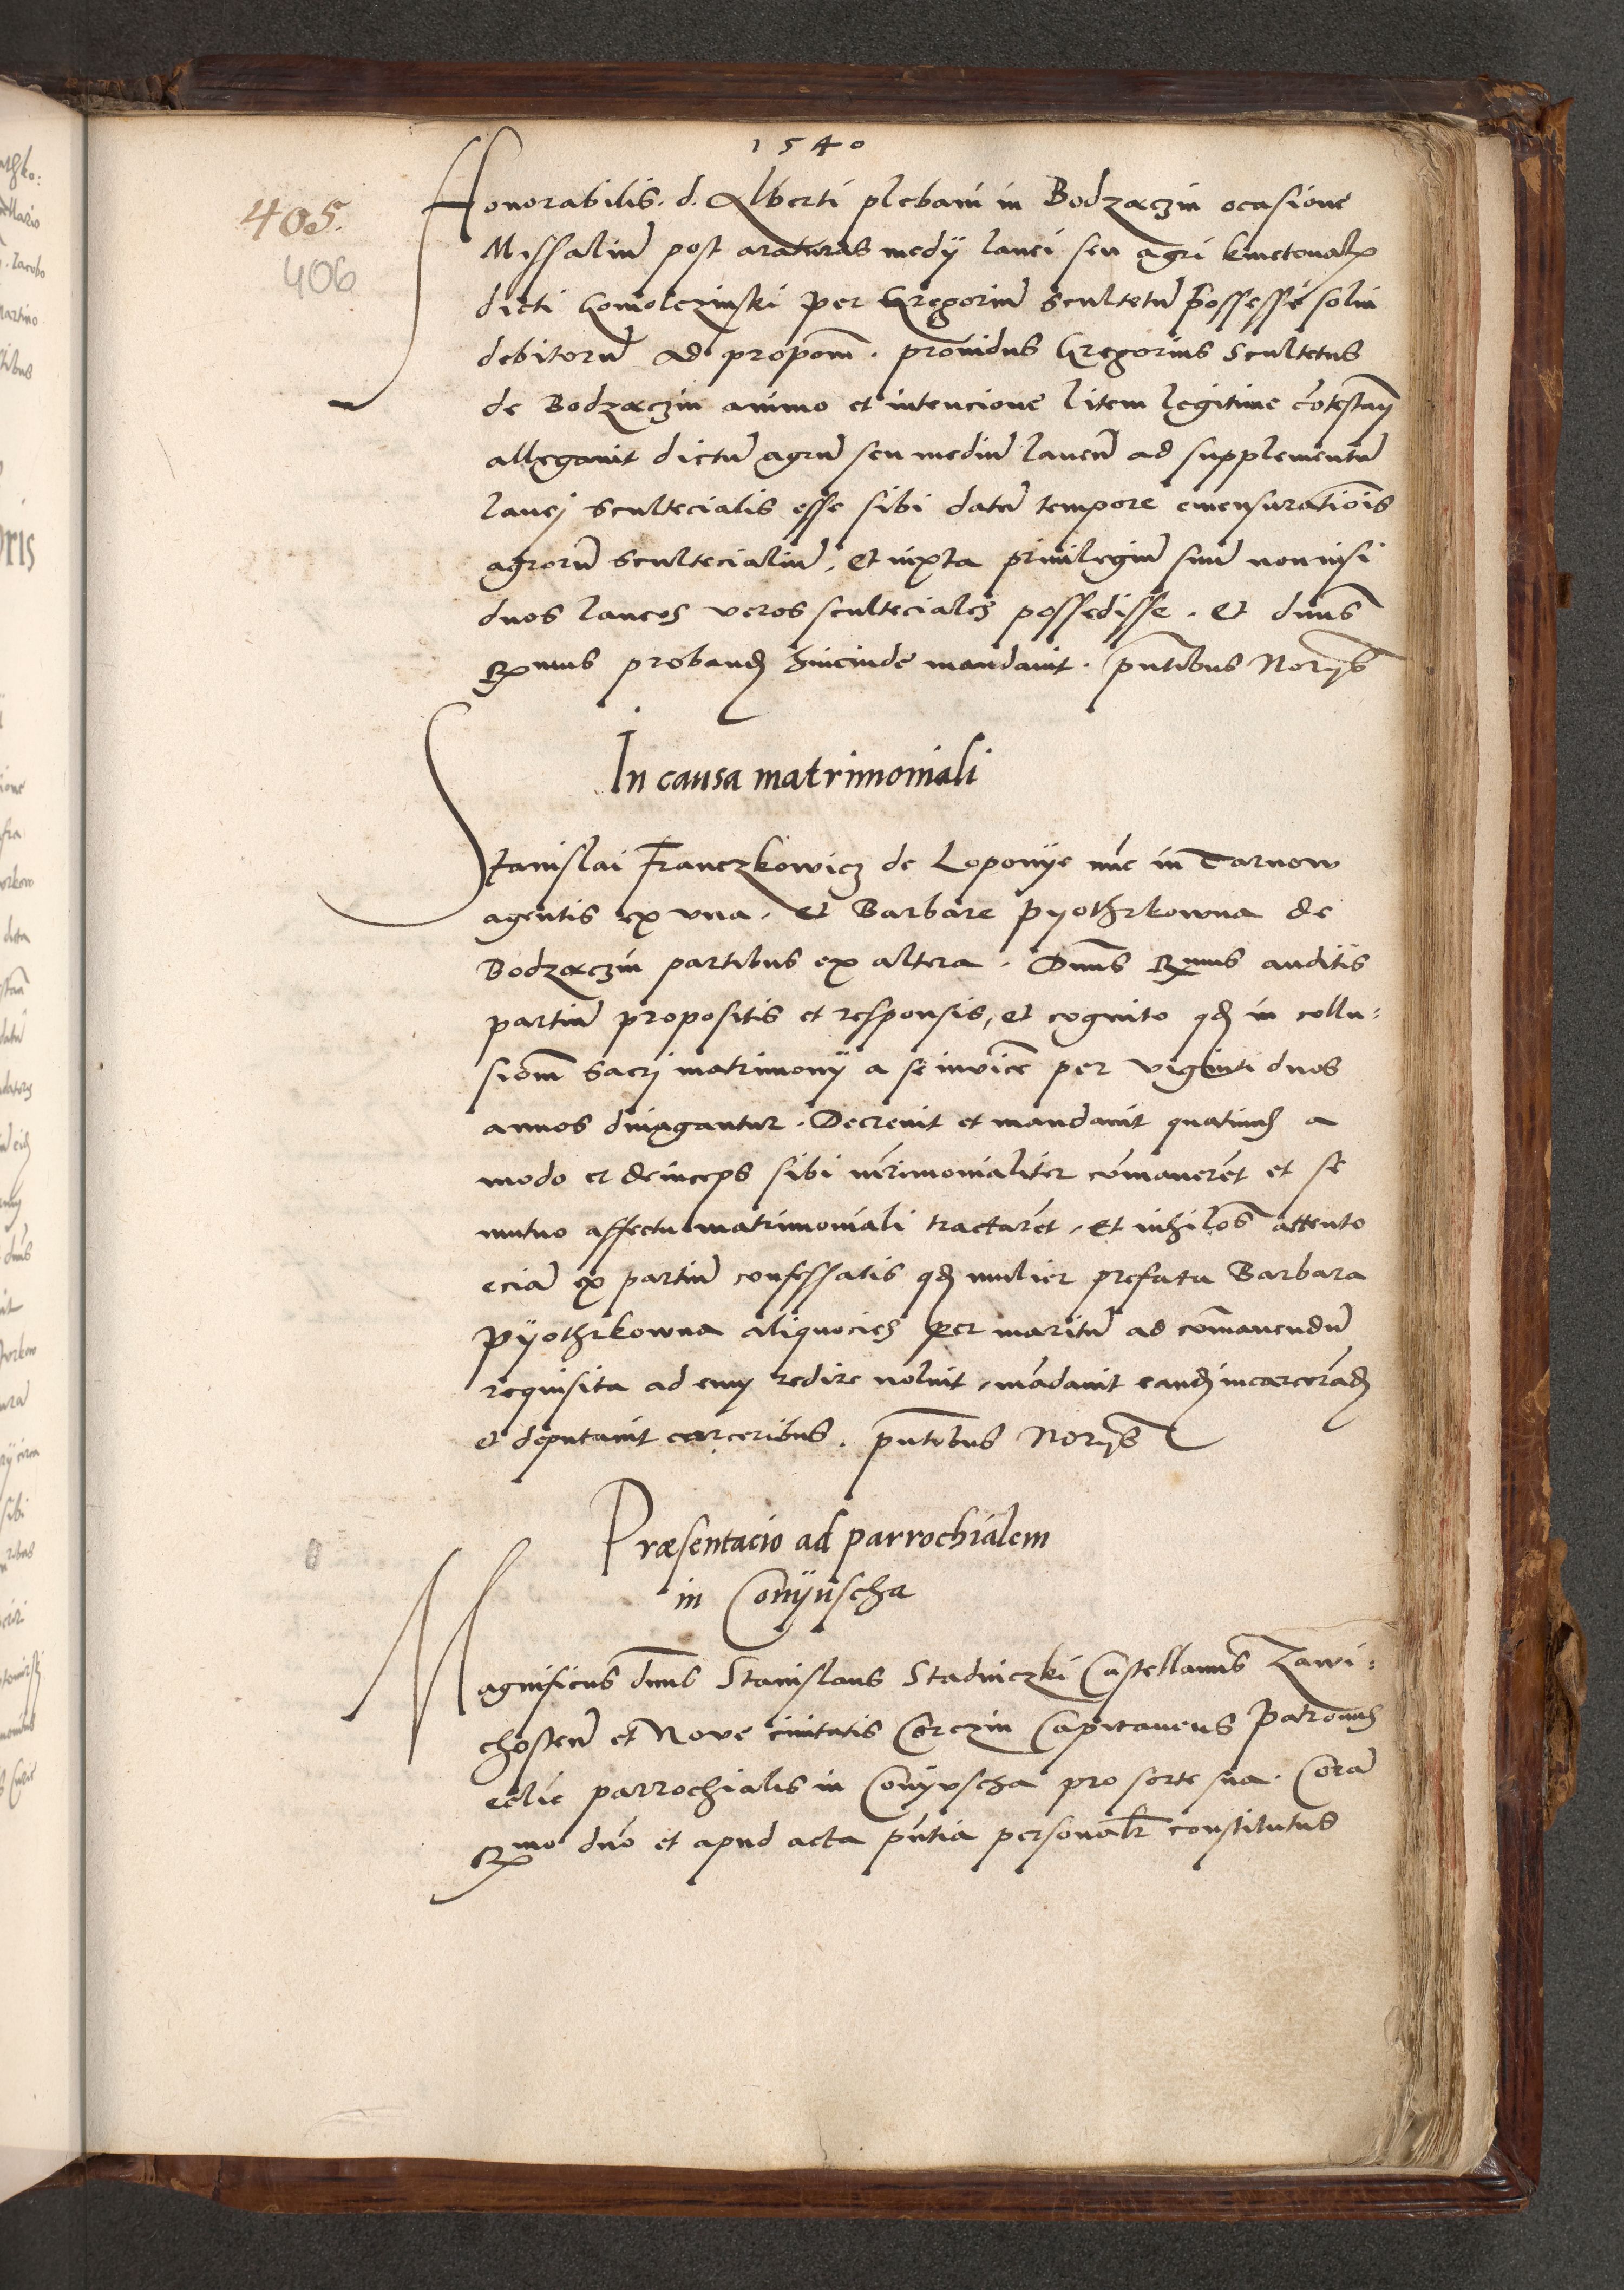 1540
405.
406
Honorabilis. d. Alberti plebani in Bodzæczin ocasione
Missaliũ post araturas medÿ lanei seu agri kmetonalis
dicti Gomolczinski per Gregoriũ Scultetũ possesse solui
debitorũ ad propom̃. prouidus Gregorius Scultetus
de Bodzæczin animo et intencione litem legitime cõtestañ
allegauit dictũ agrũ seu mediũ laneũ ad supplementũ
lanej scultecialis esse sibi datũ tempore emensurationis
agrorũ scultecialiũ, Et iuxta priuilegiũ suũ non nisi
duos laneos veros sculteciales possedisse. Et dnus
Rxmus proband hincinde mandauit. pñtibus Norijs
In causa matrimoniali
Stanislai Franczkowicz de Loponÿe nũc in Tarnow
agentis ex vna. et Barbare Pyothrkowna de
Bodzæczin partibus ex altera. Dnus Rxmus auditis
partiũ propositis et responsis, et cognito qd in collu-
siom̃ sacrj matrimonÿ a se inuicẽ per viginti duos
annos diuagantur. Decreuit et mandauit quatinus a
modo et deinceps sibi mr̃imonialiter cõmanerẽt et se
mutuo affectu matrimoniali tractarẽt, Et inhilos attento
eciã ex partiũ confessatis qd mulier prefata Barbara
Pÿothrkowna aliquocies per maritũ ad cõmanendũ
requisita ad eum redire noluit, mãdauit eand incarcerãd
et deputauit carceribus. pñtibus Norijs
Præsentacio ad parrochialem
in Conÿuscha
Magnificus dñus Stanislaus Stadniczki Castellanus Zawi-
chosteñ et Noue ciuitatis Corczin Capitaneus Patronus
ecclie parrochialis in Conÿuscha pro sorte sua. Corã
Rxmo dño et apud acta pñtia personalr constitutus